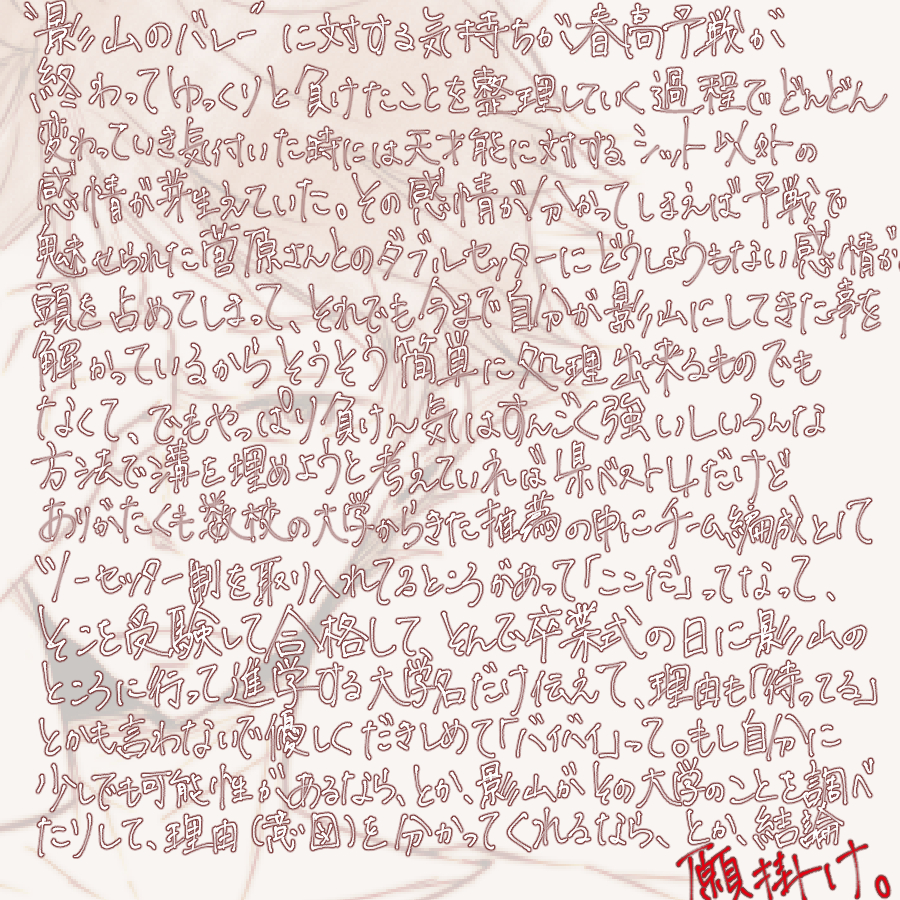 "影山のバレー"に対する気持ちが春高予戦が
終わってゆっくりと負けたことを整理していく過程でどんどん
変わっていき気付いた時には天才能に対するシット以外の
感情が芽生えていた。その感情が分かってしまえば予戦で
魅せられた菅原さんとのダブルセッターにどうしようもない感情が
頭を占めてしまって、それでも今まで自分が影山にしてきた事を
解かっているからそうそう簡単に処理出来るものでも
なくて、でもやっぱり負けん気はすんごく強いしいろんな
方法で溝を埋めようと考えていれば県ベスト4だけど
ありがたくも数校の大学からきた推薦の中にチーム編成として
ツーセッター制を取り入れてるところがあって「ここだ」ってなって、
そこを受験して合格して、そんで卒業式の日に影山の
ところに行って進学する大学名だけ伝えて、理由も「待ってる」
とかも言わないで優しくだきしめて「バイバイ」って。もし自分に
少しでも可能性があるなら、とか、影山がその大学のことを調べ
たりして、理由(意図)を分かってくれるなら、とか、結論
願掛け。